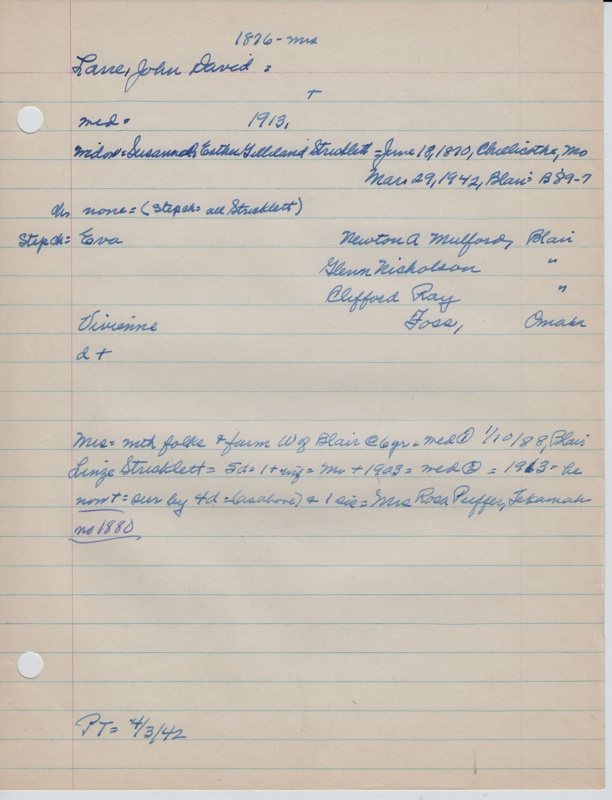 1876 - Mrs
Larre, John David =
+
med = 1913,
widow = Susannah Esther Gilliland Stricklett = June 18, 1870, Chillicothe, Mo
Mar. 29, 1942, Blair = B 89-7
ch. none = (Step ch = all Stricklett)
Step ch = Eva Newton A Mulford, Blair
Glenn Nicholson "
Clifford Ray "
Vivienne Foss, Omaha
d +
Mrs = with folks & farm W of Blair @ 6 yr. = med ① 1/10/88, Blair
Linze Stricklett = 5d = 1 + = Mr + 1903 = med ② = 1913 = he
now + = sur by 4d = (as above) & 1 sis = Mrs Rosa Puffer, Tekamah
no 1880
PT = 4/3/42